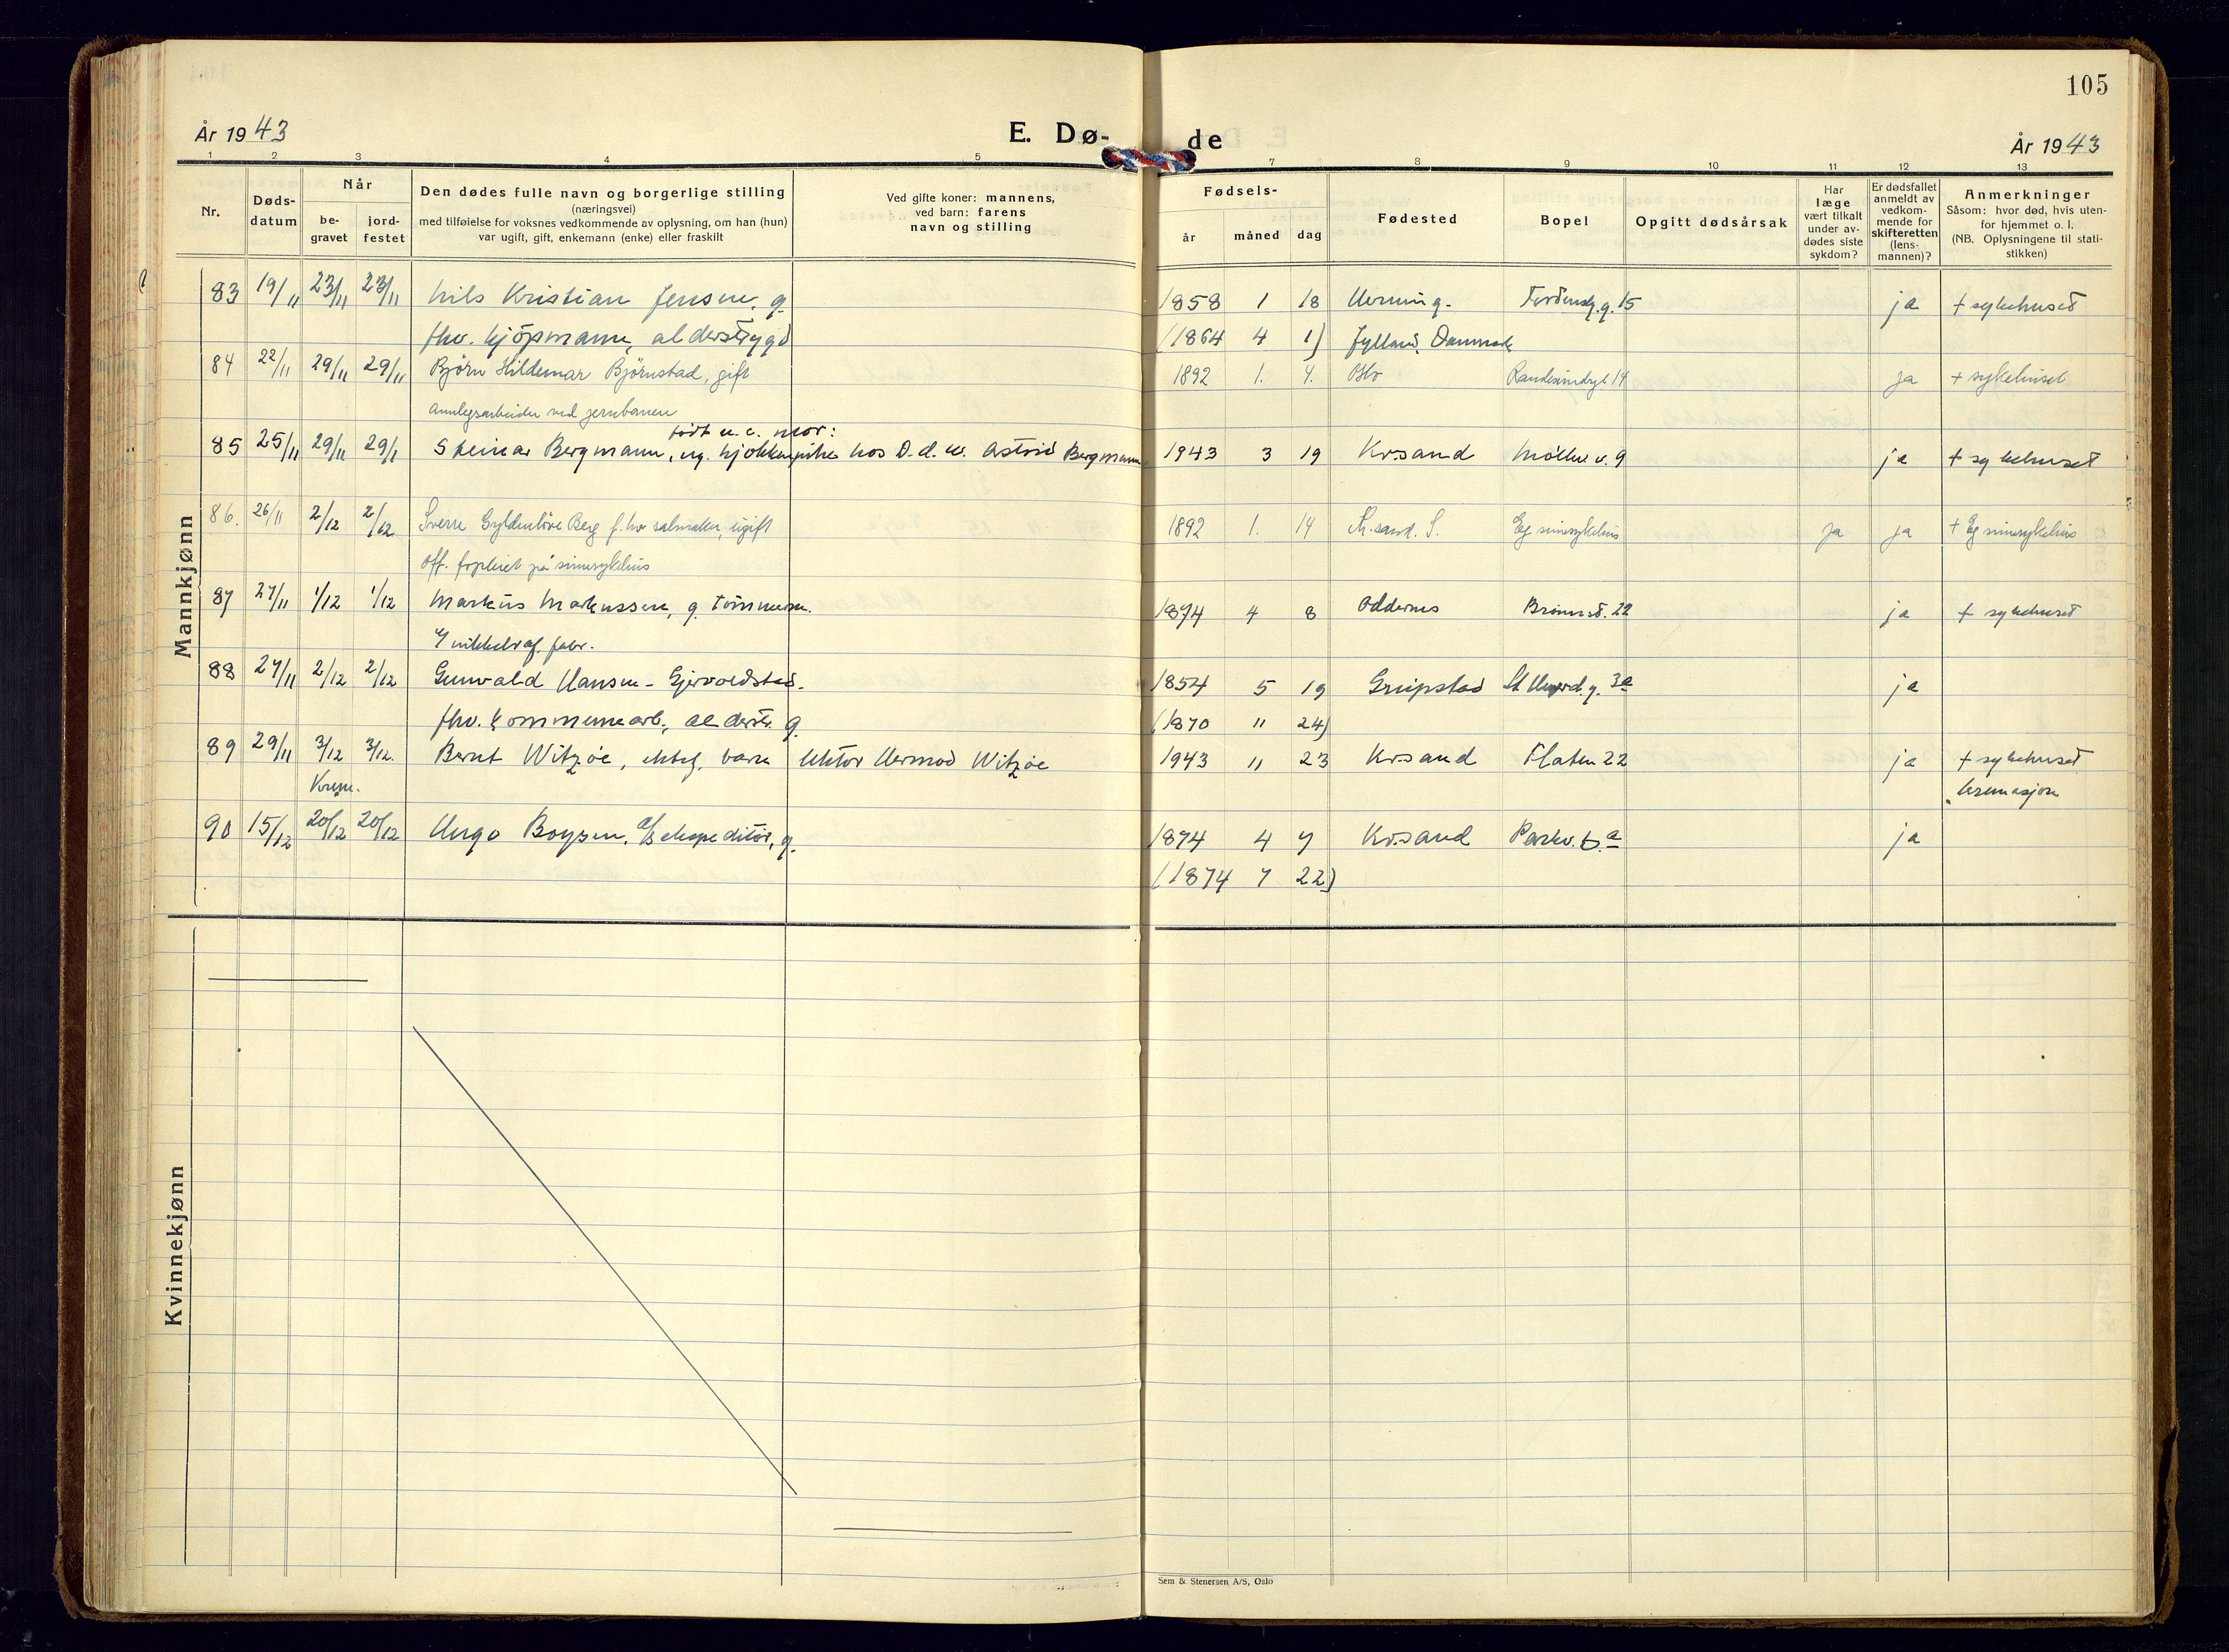 105
År 1943
E. Dø-
de
År 1943
1 2 3 4 5 7 8 9 10 11 12 13
Nr.
Døds-
datum
Når
be-
gravet
jord-
festet
Den dødes fulle navn og borgerlige stilling
(næringsvei)
med tilføielse for voksnes vedkommende av oplysning, om han (hun)
var ugift, gift, enkemann (enke) eller fraskilt
Ved gifte koner: mannens,
ved barn: farens
navn og stilling
Fødsels-
år måned dag
Fødested
Bopel
Opgitt dødsårsak
Har
læge
vært tilkalt
under av-
dødes siste
sykdom?
Er dødsfallet
anmeldt av
vedkom-
mende for
skifteretten
(lens-
mannen)?
Anmerkninger
Såsom: hvor død, hvis uten-
for hjemmet o. l.
(NB. Oplysningene til stati-
stikken)
Mannkjønn
83 19/11 23/11 23/11 Nils Kristian Jensen, g. 1858 1 18 Herning. 15 ja + sykehuset
fhv. kjöpmann, alderstrygd (1864 4 1) Jylland, Danmark
84 22/11 29/11 29/11 Bjørn Hildemar Bjørnstad, gift 1892 1. 4. Oslo 14 ja + sykehuset
Anlegsarbeider ved jernbanen
født u. e. mor:
85 25/11 29/11 29/1 Steinar Bergmann, ug. kjökkenpike hos D.d.w. Astrid Bergmann 1943 3 19 Kr.sand Möllev. 9 ja + sykehuset
86. 26/11 2/12 2/12 Sverre Gyldenlöve Berg f.hv salmaker, ugift 1892 1. 14 Kr.sand. S. Eg sinnsykehus ja ja + Eg sinnsykehus
off. forpleiet på sinnsykehus
87 27/11 1/12 1/12 Markus Markussen, g. tömmerm. 1874 4 8 Oddernes 22 ja + sykehuset
v/ nikkelraf. fabr.
88 27/11 2/12 2/12 Gunvald Hansen - Gjervoldstad. 1854 5 19 Greipstad 3a ja
fhv. kommunearb., alderstr. g. (1870 11 24)
89 29/11 3/12 3/12. Bernt Witzöe, ektef. barn lektor Hermod Witzöe 1943 11 23 Kr.sand Flaten 22 ja + sykehuset
Krem. kremasjon
90 15/12 20/12 20/12 Hugo Boysen, ekspeditör, g. 1874 4 7 Kr.sand Parkv. ja
(1874 7 22)
Kvinnekjønn
Sem & Stenersen A/S, Oslo